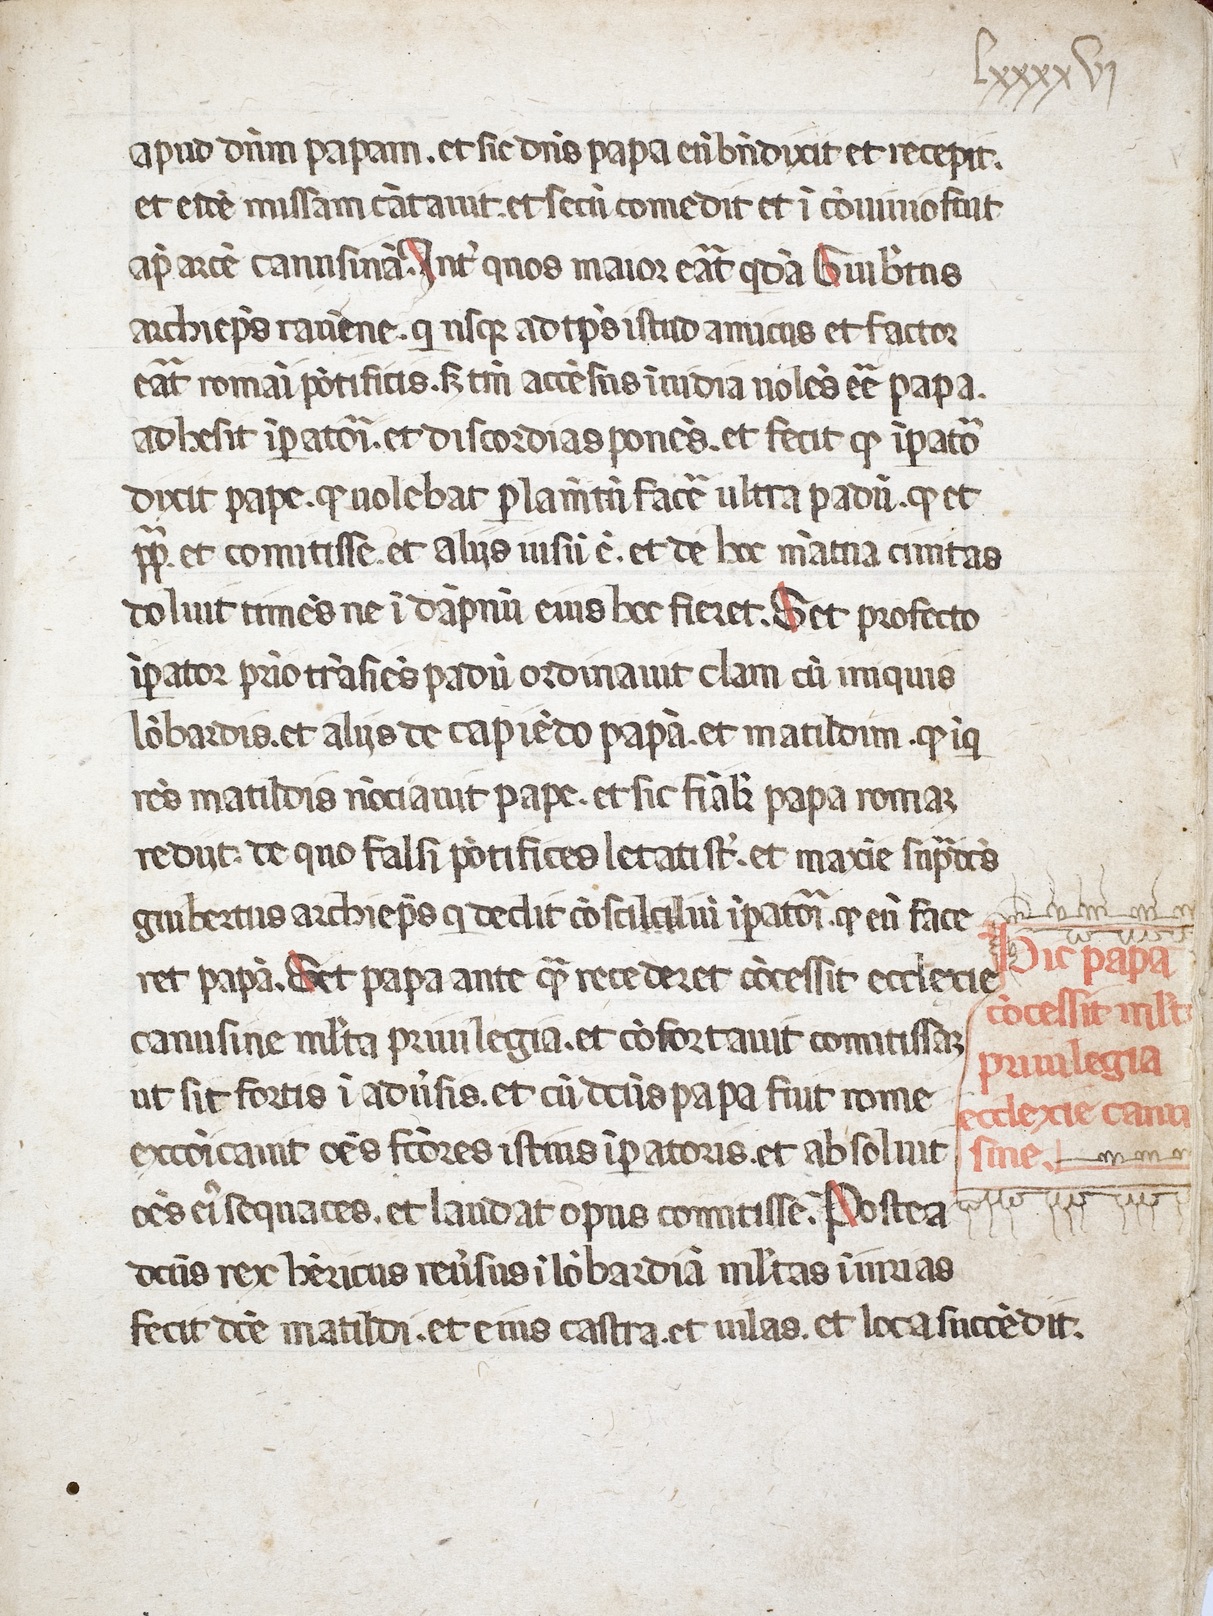 Lxxxxvi
apud dn̄m papam. et sic dn̄s papa eū bn̄dixit et recepit.
et ecc̄e missam cātauit. et secū comedit et ī cōuiuio fuit
ap̄ arcē canusinā. Int̄ quos maior eāt qdā Guib̄tus
archiep̄s rauēne. q usq; ad tp̄s istud amicus et factor
eāt romāi pōtificis. s; tn̄ accēsus īuidia uolēs eē̄ papa.
adhesit īpatōi. et discordias ponēs. et fecit q īpatō
dixit pape. q uolebat plam̄tū facē ultra padū. q et
pp̄. et comitisse. et alijs uisū ē. et de hoc mātua ciuitas
doluit timēs ne ī dāpnū eius hoc fieret. Set profecto
īpator prīo trāsiēs padū ordinauit clam cū iniquis
lōbardis. et alijs de capiēdo papā. et matildim. q īq
rēs matildis nōciauit pape. et sic fīalr̄ papa romaz
redijt. de quo falsi pōtifices letati st̄. et maxīe sup̄dcs̄
guibertus archiep̄s q dedit cōsilium īpatōi. q eū face
ret papā. Set papa ante q̄ recederet cōcessit ecclexie
canusine ml̄ta priuilegia. et cōfortauit comitissaz
ut sit fortis ī adūsis. et cū dcūs papa fuit rome
excōicauit oēs fc̄ores istius īpatoris. et absoluit
oēs eī sequaces. et laudat opus comitisse. Postea
dcūs rex hēricus reūsus ī lōbardiā ml̄tas īiurias
fecit dc̄e matildi. et eius castra. et uilas. et loca succēdit.
Hic papa
cōcessit ml̄ta
priuilegia
ecclexie canu
sine.